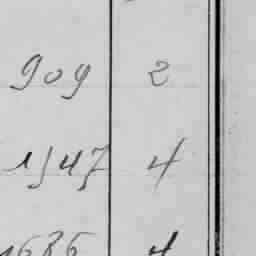 909 2
1547 4
1686 4